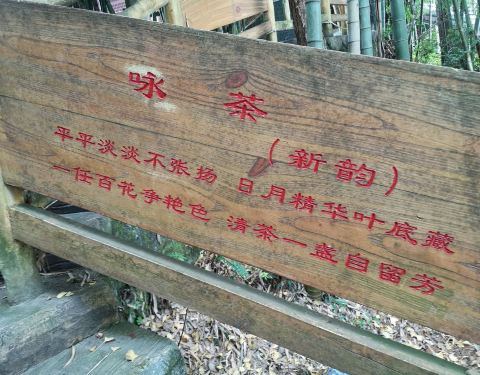 咏茶
（新韵）
平平淡淡不张扬 日月精华叶底藏
一任百花争艳色 清茶一盏自留芳